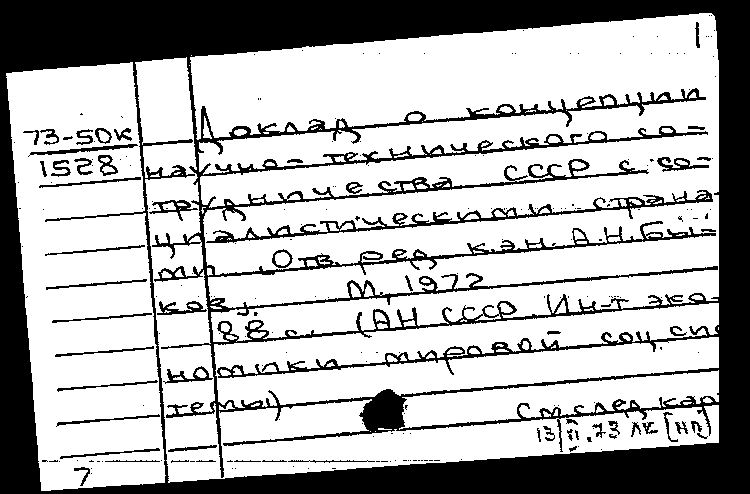 1
73-50к Доклад о концепции
1528 научно-технического со-
трудничества СССР с со-
циалистическими страна-
ми. Отв. ред. к.э.н. А.Н. Бы-
ков.
М., 1972
88 с. (АН СССР. Ин-т эко-
номики мировой соц. сис
темы).
См. след. кар
13/II.73 ЛК [НП]
7